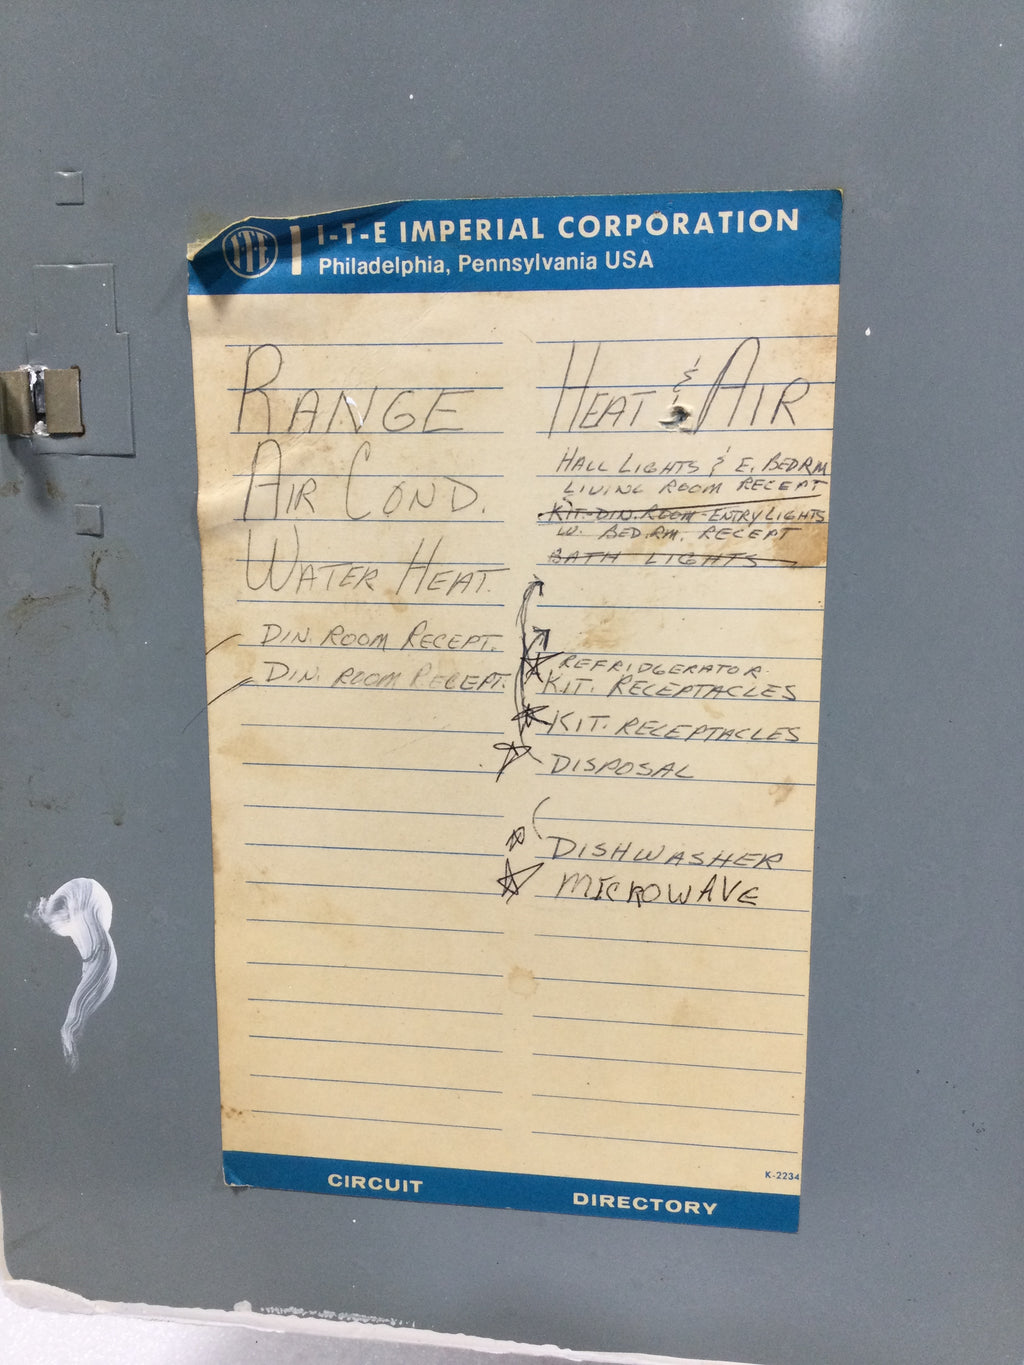 I-T-E
I-T-E IMPERIAL CORPORATION
Philadelphia, Pennsylvania USA
RANGE
AIR COND.
WATER HEAT.
DIN. ROOM RECEPT.
DIN. ROOM RECEPT.
HEAT & AIR
HALL LIGHTS & E. BEDRM
LIVING ROOM RECEPT
KIT-DIN.ROOM-ENTRY LIGHTS
W. BED.RM. RECEPT
BATH LIGHTS
REFRIDGERATOR
KIT. RECEPTACLES
KIT. RECEPTACLES
DISPOSAL
DISHWASHER
MICROWAVE
K-2234
CIRCUIT
DIRECTORY